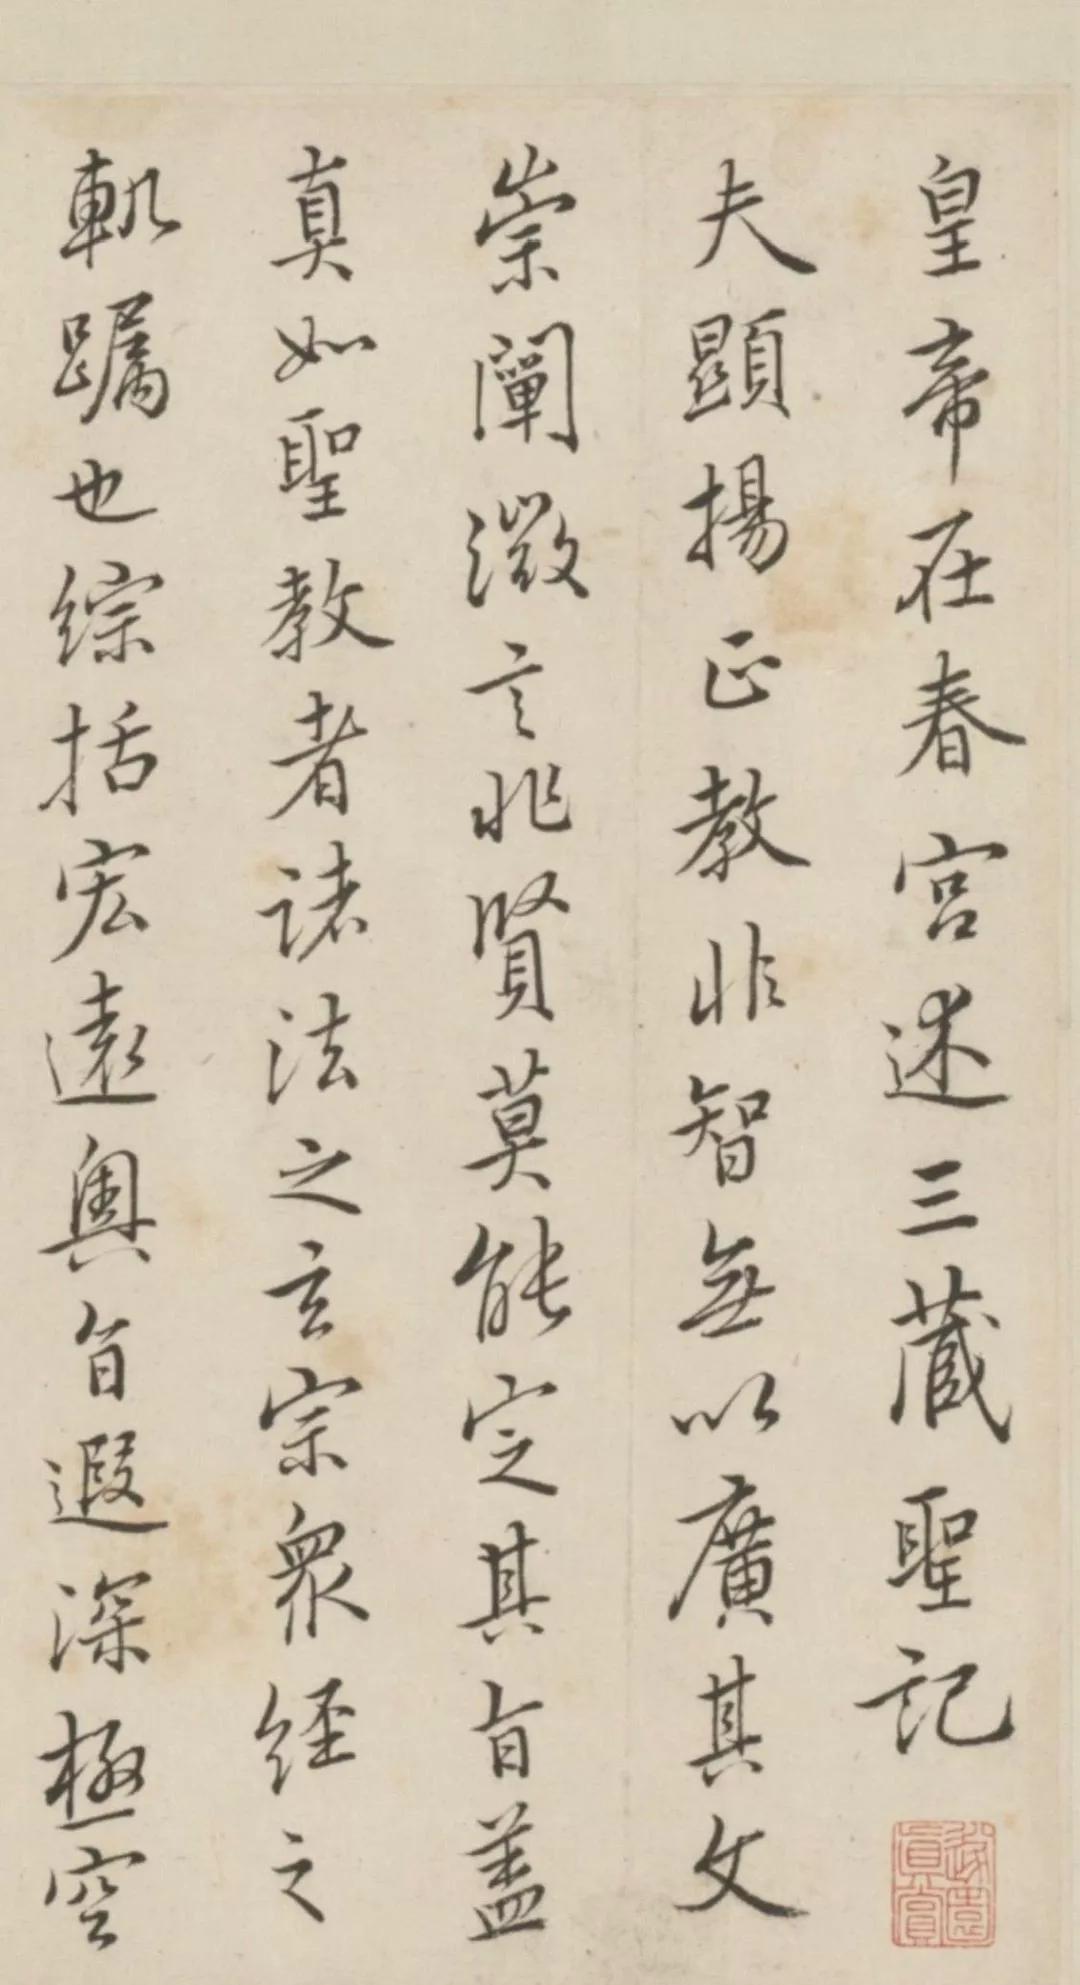 皇帝在春宮述三藏聖記
夫顯揚正教非智無以廣其文
崇闡微言非賢莫能定其旨蓋
真如聖教者諸法之玄宗眾經之
軌躅也綜括宏遠奧旨遐深極空
真賞